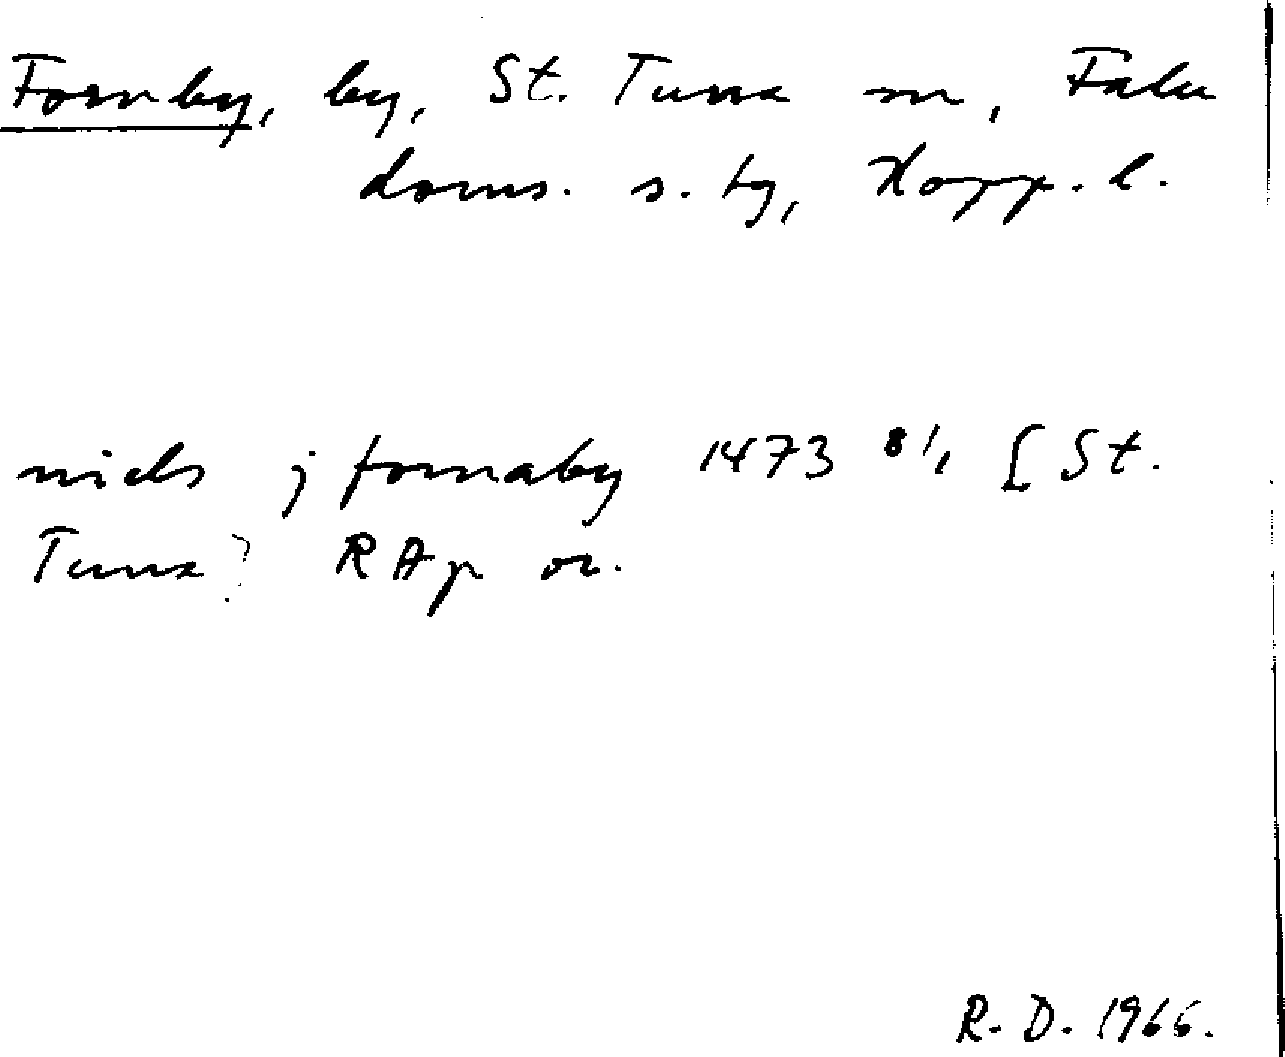 Fornby, by, St. Tuna sn, Falu
doms. s. tg, Kopp. l.
niels j fornaby 1473 8/1 [ St.
Tuna? RAp or.
R. D. 1966.